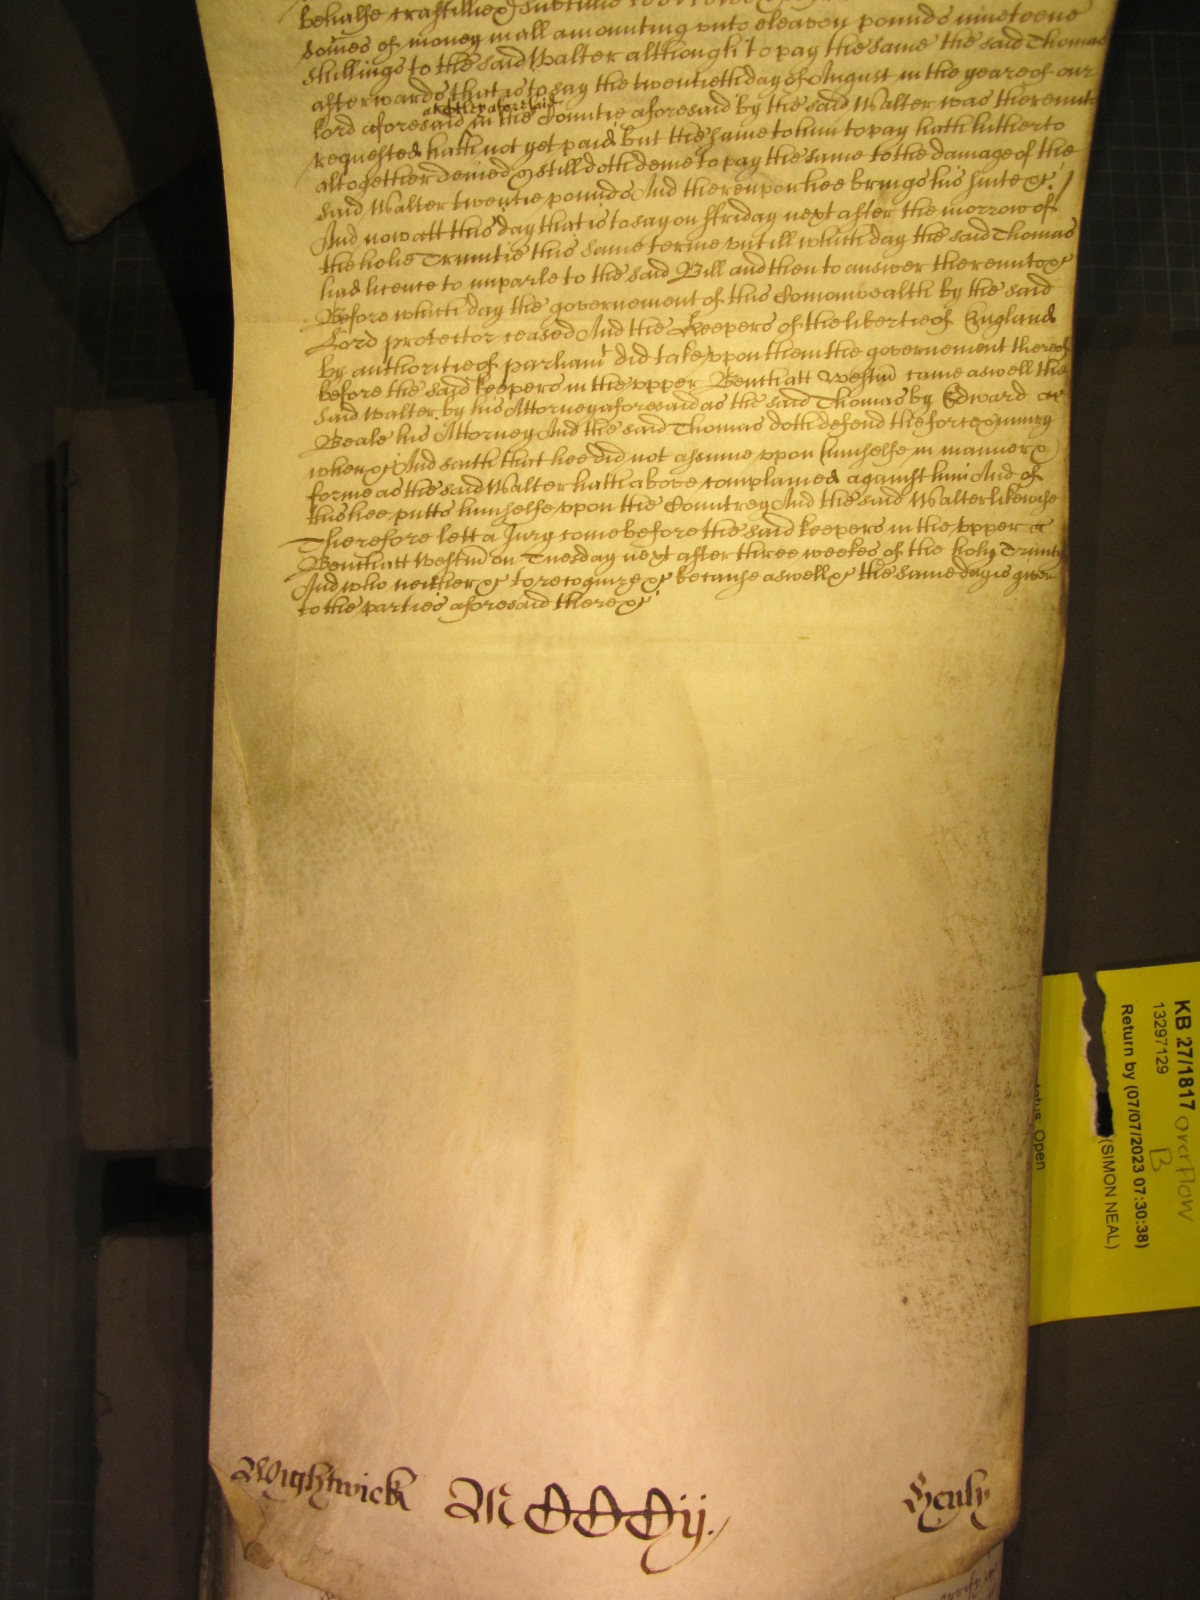 behalfe craftilie &
Somes of money in all amounting vnto eleaven pounds nineteene
shillings to the said Walter although to pay the same the said Thomas
afterwards that is to say the twentieth day of August in the yeare of our
att Hepaforesaid
lord aforesaid in the Countie aforesaid by the said Walter was therevnto
requested hath not yet paid But the same to him to pay hath hitherto
altogether denied & still doth denie to pay the same to the damage of the
said Walter twentie pounds And therevpon hee brings his suite &c
And now att this day that is to say on ffriday next after the morrow of
the holie Trinitie this same terme vntill which day the said Thomas
had licence to imparle to the said Bill and then to answer therevnto &c
Before which day the governement of this Comonwealth by the said
Lord protector ceased And the Keepers of the libertie of England
by authoritie of parliamt did take vpon them the governement thereof
before the said keepers in the vpper Bench att Westm came aswell the
said Walter by his Attorney aforesaid as the said Thomas by Edward
Beale his Attorney And the said Thomas doth defend the force & iniury
when &c And saith that hee did not assume vpon himselfe in manner &
forme as the said Walter hath above complained against him And of
this hee putts himselfe vpon the Countrey And the said Walter likewise
Therefore lett a Jury come before the said keepers in the vpper
Bench att Westm on Tuesday next after three weekes of the holy Trinity
And who neither &c to recognize &c because aswell &c the same day is given
to the parties aforesaid there &c
Wightwick MDDDij. Scyly
KB 27/1817 overflow
13297129 B
Return by (07/07/2023 07:30:38)
(SIMON NEAL)
Status: Open